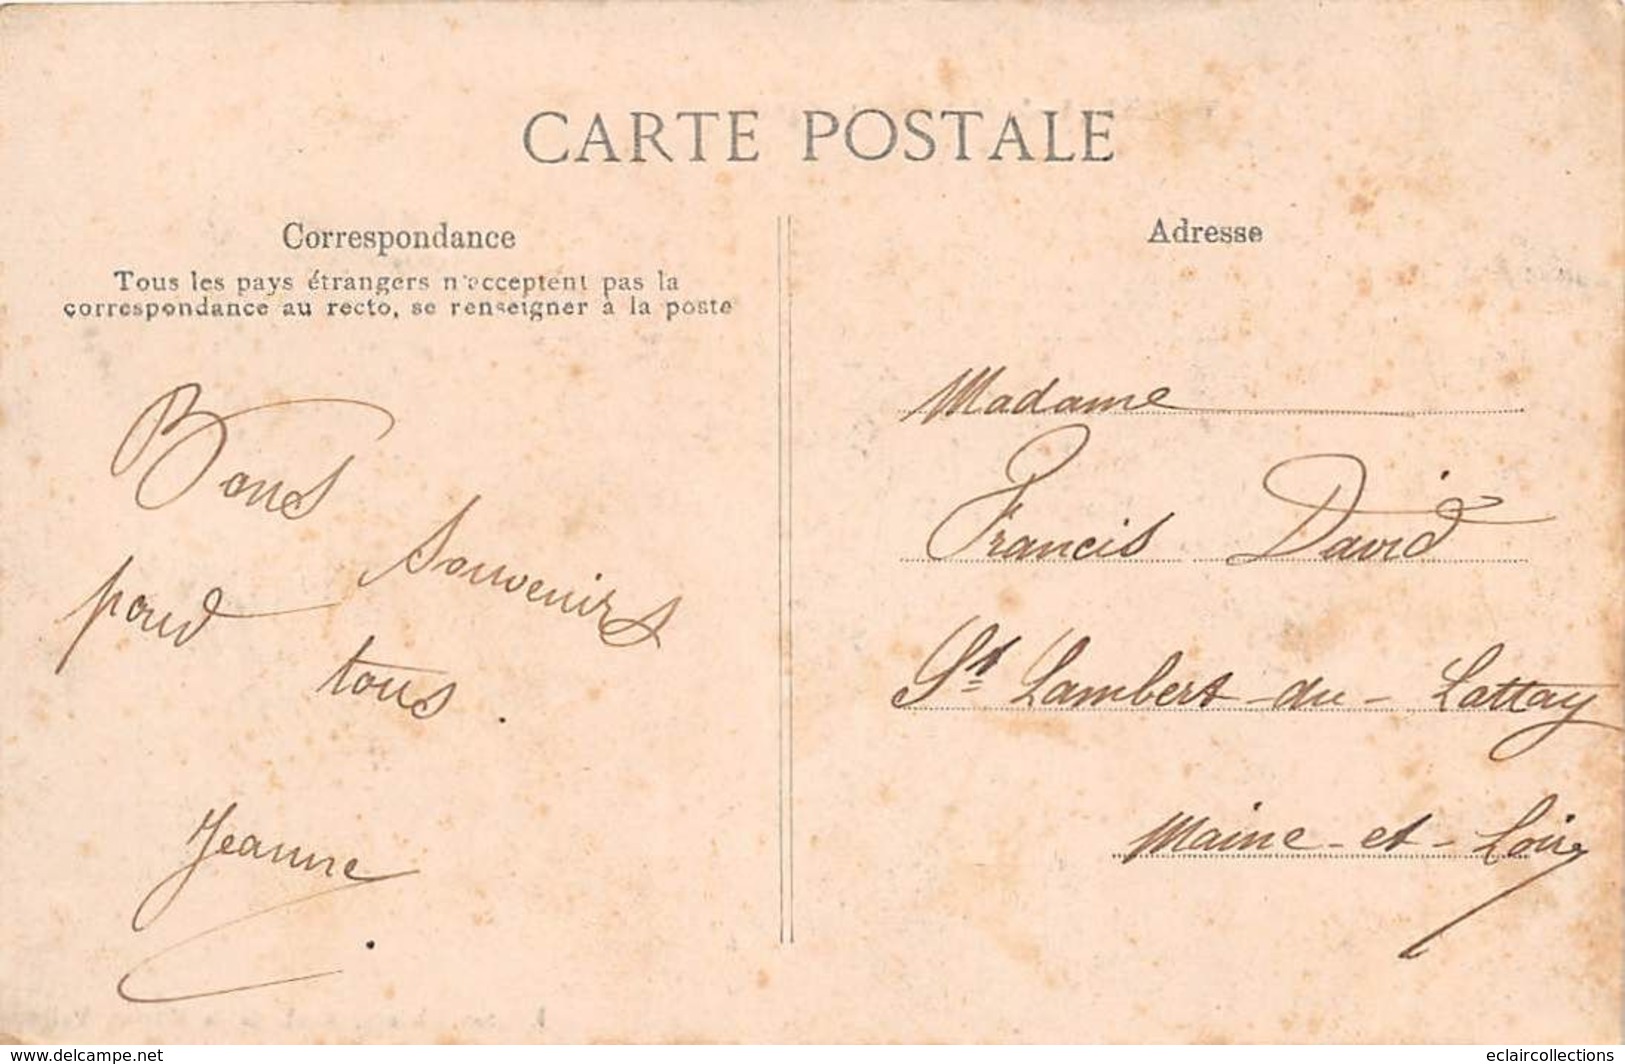 CARTE POSTALE
Correspondance
Tous les pays étrangers n'acceptent pas la
correspondance au recto, se renseigner à la poste
Bons
souvenirs
pour
tous.
Jeanne
Adresse
Madame
Francis David
St Lambert-du-Lattay
Maine-et-Loire
www.delcampe.net
eclaircollections